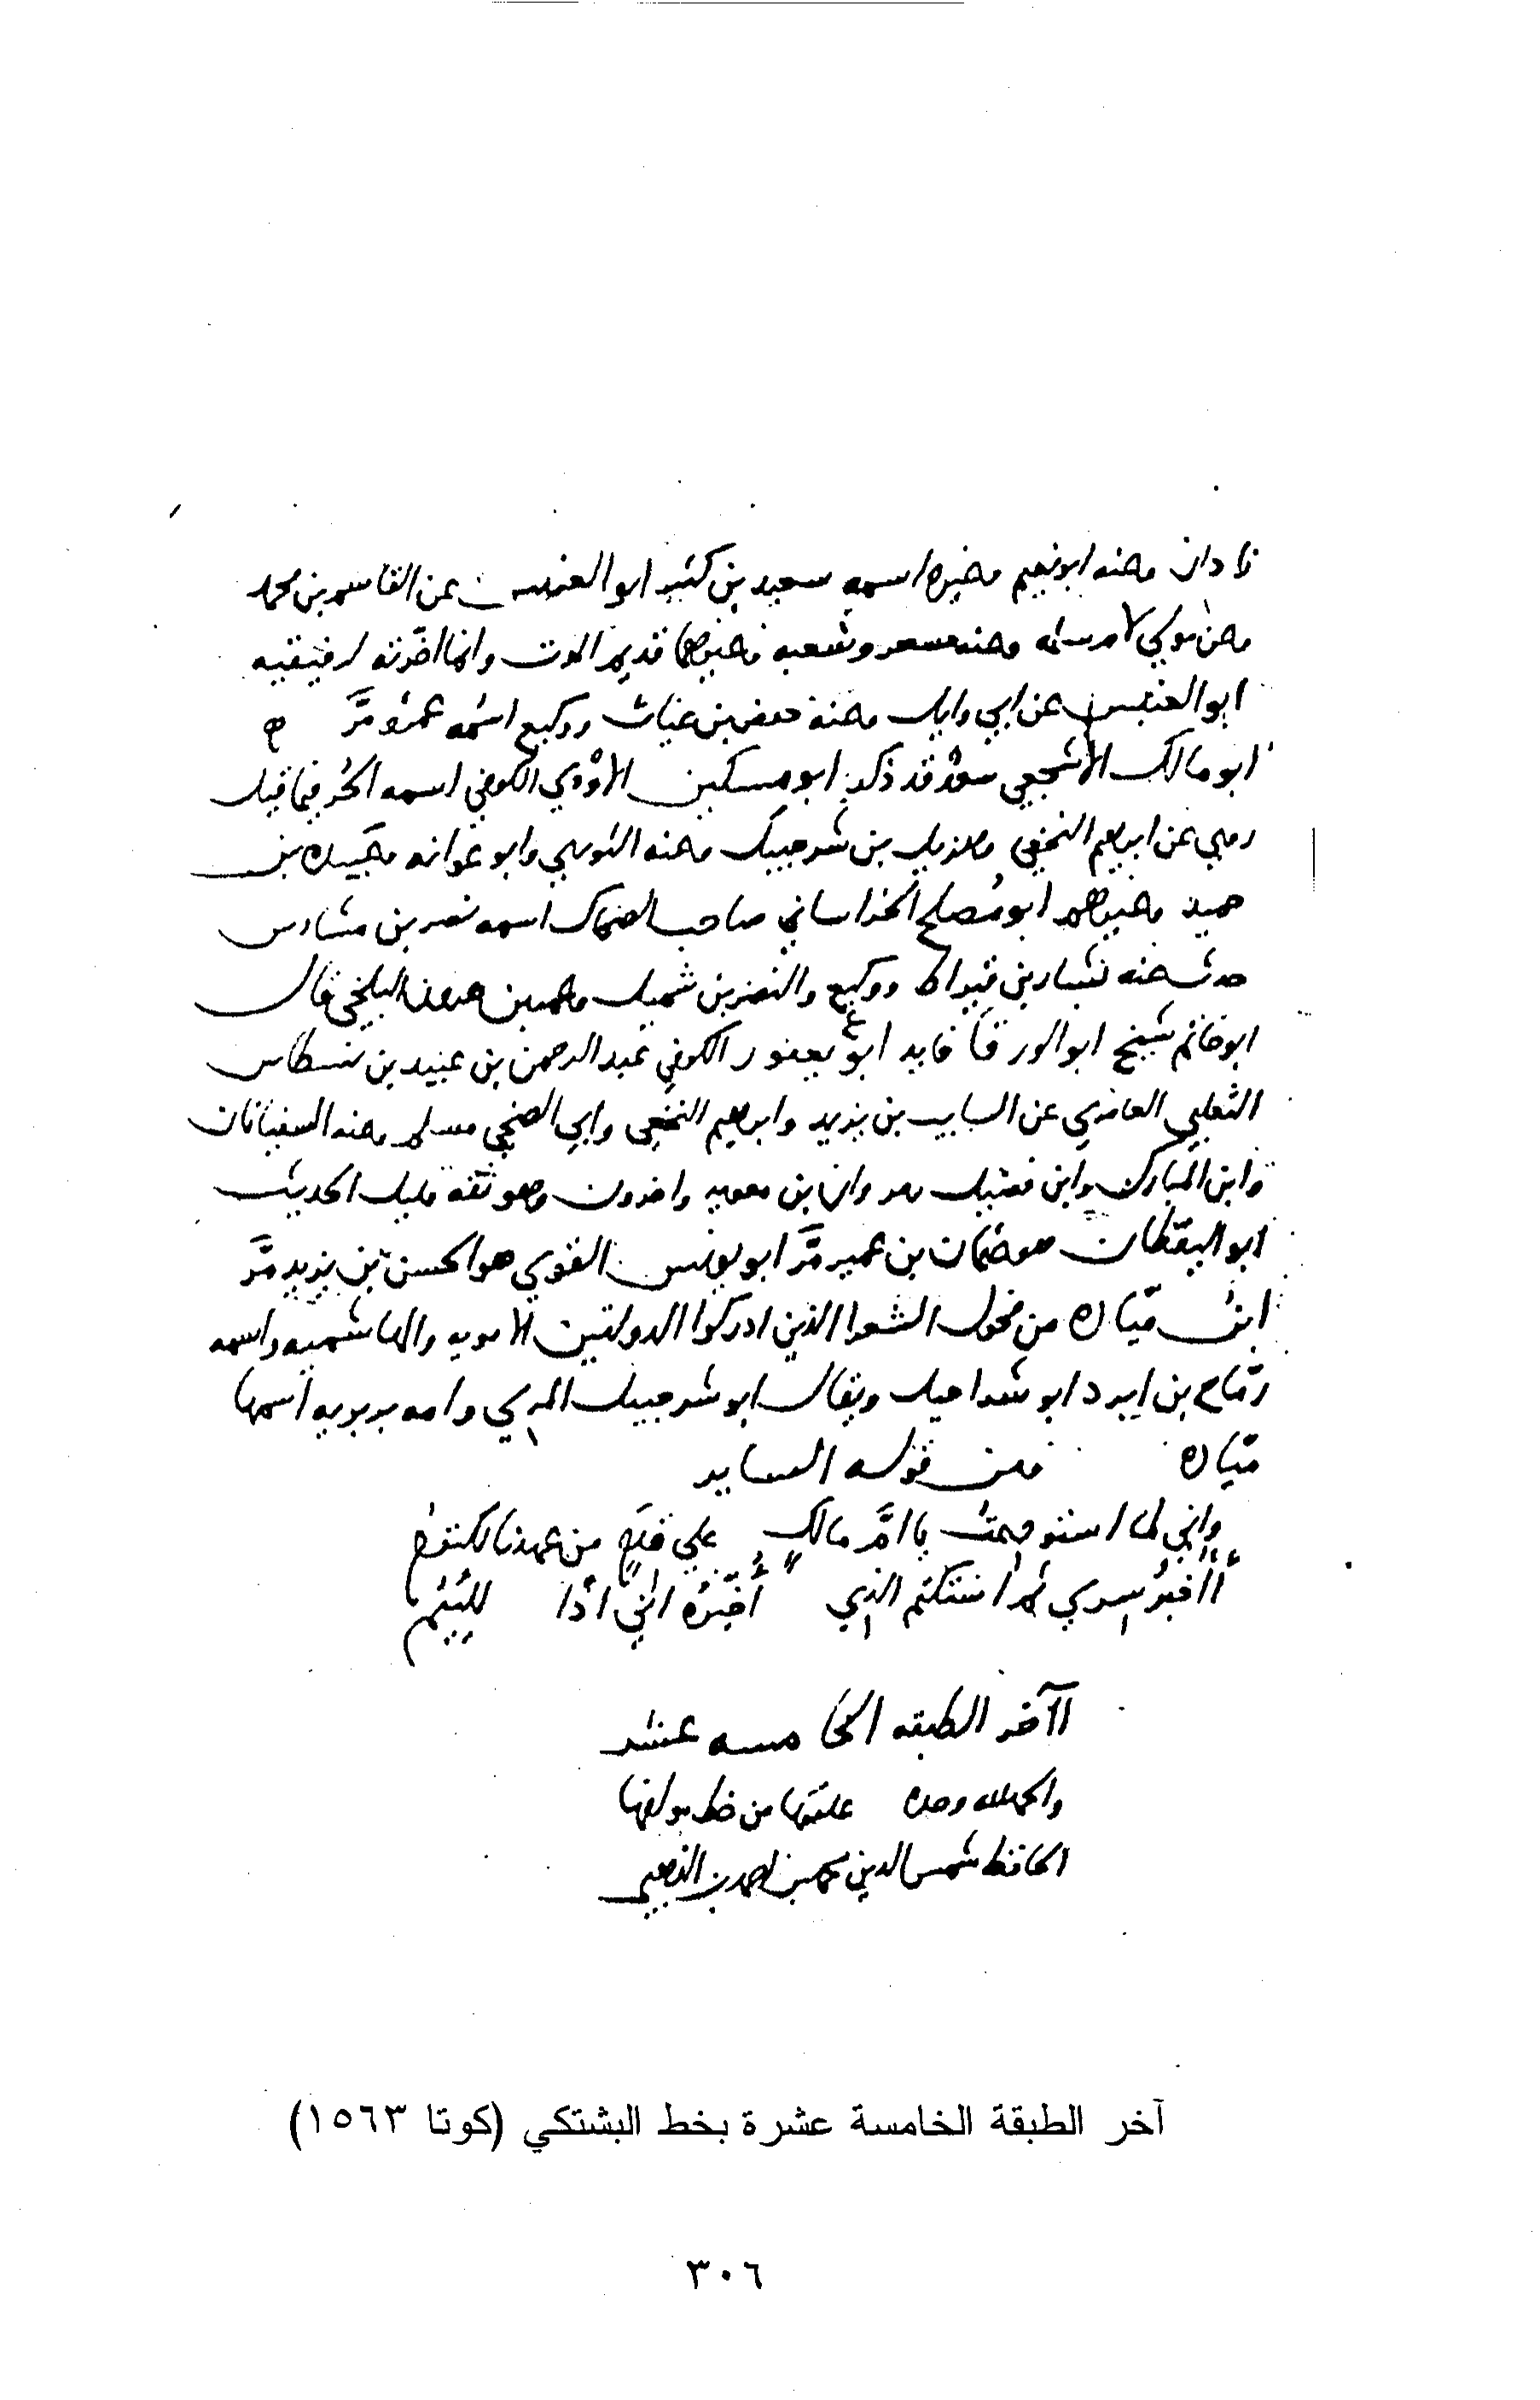 زادان وعنه ابو نعيم وغيره اسمه سعيد بن كثير ابو العنبس عن القاسم بن محمد
وعن مولي لام سلمه وعنه مسعر وشعبه وغيرهما قديم الموت وانما اخرته لرفيقيه
ابو العنبس عن ابي وايل وعنه حفص بن غياث ووكيع اسمه عمرو مَرَّ
ابو مالك الاشجعي سعد قد ذكر ابو مسكين الاودي الكوفي اسمه الحُر فيما قيل
روي عن ابرهيم النخعي وهزيل بن شرحبيل وعنه الثوري وابو عوانه وعبيده بن
حميد وغيرهم ابو مُصلح الخراساني صاحب الضحاك اسمه نصر بن مشارس
حدث عنه بشار بن قيراط ووكيع والنضر بن شميل وعمر بن هرون البلخي قال
ابو حاتم شيخ ابو الورقا فايد ابو يعفور الكوفي عبد الرحمن بن عبيد بن نسطاس
الثعلبي العامري عن السايب بن يزيد وابرهيم النخعي وابي الضحي مسلم وعنه السفيانان
وابن المبارك وابن فضيل ومروان بن معويه واخرون وهو ثقه قليل الحديث
ابو اليقظان هو عثمان بن عمير مَرَّ ابو يونس القوي هو الحسن بن يزيد مَرَّ
ابن ميّاده من فحول الشعرا الذين ادركوا الدولتين الامويه والهاشميه واسمه
رمّاح بن ابرد ابو شراحيل ويقال ابو شرحبيل المري وامه بربريه اسمها
ميّاده فمن قوله الساير
واني لما استودعت يا امَّ مالك علي قدم من عهدنا لكتوم
أاخبر سري ثم استكتم الذي أُخبّره اني اذا للئيم
اآخر الطبقه الخامسه عشر
والحمد لله وحده علقتها من خط مولفها
الحافظ شمس الدين محمد بن احمد بن الذهبي
آخر الطبقة الخامسة عشرة بخط البشتكي (كوتا ١٥٦٣)
٣٠٦